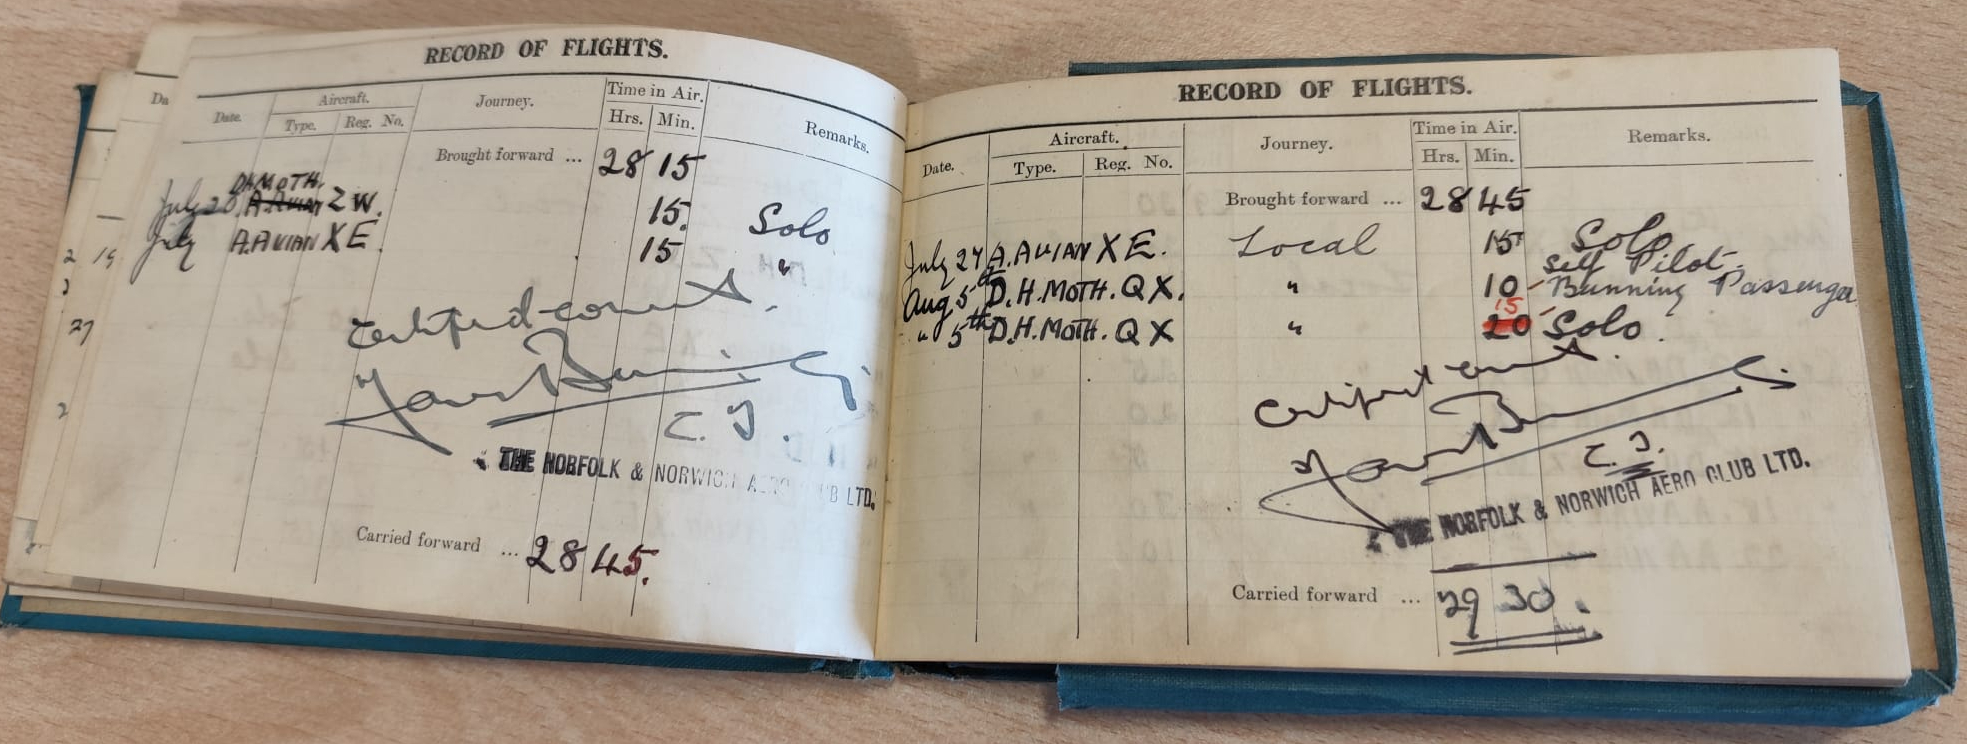 RECORD OF FLIGHTS.
Da
Date. Aircraft. Journey. Time in Air. Remarks.
Type. Reg. No. Hrs. Min.
Brought forward ... 28 15
D.H. MOTH.
July 20 A. Avian Z W. 15. Solo
July A. AVIAN X E. 15 "
2 19
2
27
2
Certified correct.
C. I.
THE NORFOLK & NORWICH AERO CLUB LTD.
Carried forward ... 28 45.
RECORD OF FLIGHTS.
Date. Aircraft. Journey. Time in Air. Remarks.
Type. Reg. No. Hrs. Min.
Brought forward ... 28 45
July 27 A. AVIAN X E. Local 15 Solo
Self Pilot.
Aug 5th D.H. MOTH. Q X. " 10 Bunning Passenger
15
" 5th D.H. MOTH. Q X " 20 Solo.
Certified correct.
C. I.
THE NORFOLK & NORWICH AERO CLUB LTD.
Carried forward ... 29 30.